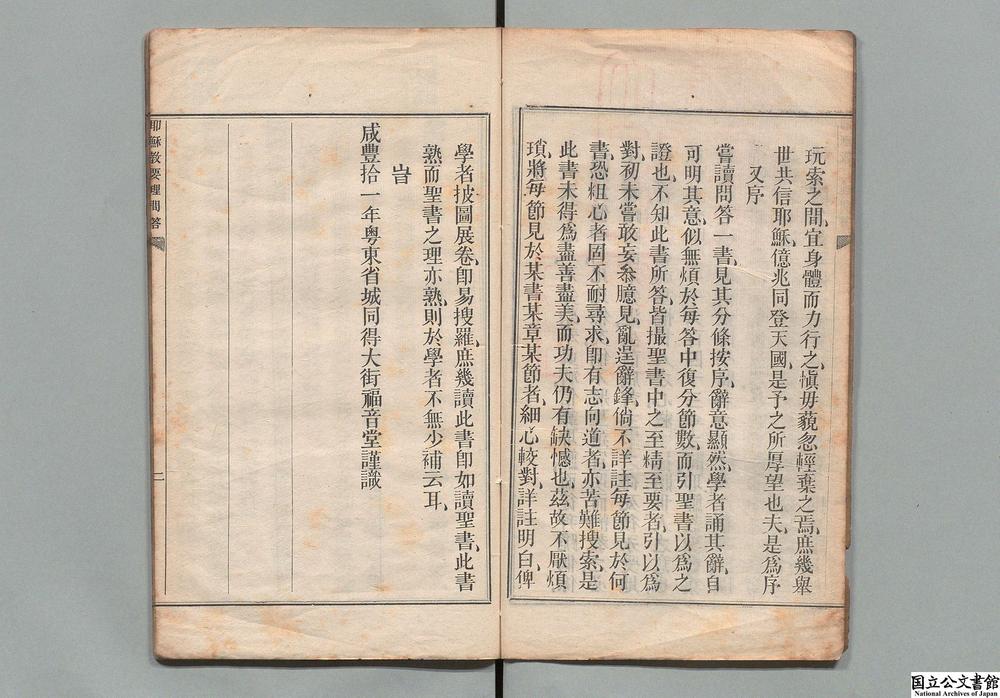 玩索之間、宜身體而力行之、愼毋藐忽輕棄之焉、庶幾舉
世共信耶穌、億兆同登天國、是予之所厚望也夫、是爲序
又序
嘗讀問答一書、見其分條按序、辭意顯然、學者誦其辭、自
可明其意、似無煩於每答中復分節數、而引聖書以爲之
證也、不知此書所答、皆撮聖書中之至精至要者、引以爲
對、初未嘗敢妄叅臆見、亂逞辭鋒、倘不詳註每節見於何
書、恐粗心者固不耐尋求、卽有志向道者、亦苦難搜索、是
此書未得爲盡善盡美、而功夫仍有缺憾也、茲故不厭煩
瑣、將每節見於某書某章某節者、細心較對、詳註明白、俾
學者披圖展卷、卽易搜羅、庶幾讀此書卽如讀聖書、此書
熟而聖書之理亦熟、則於學者不無少補云耳、
旹
咸豐拾一年粤東省城同得大街福音堂謹識
耶穌教要理問答
二
国立公文書館
National Archives of Japan